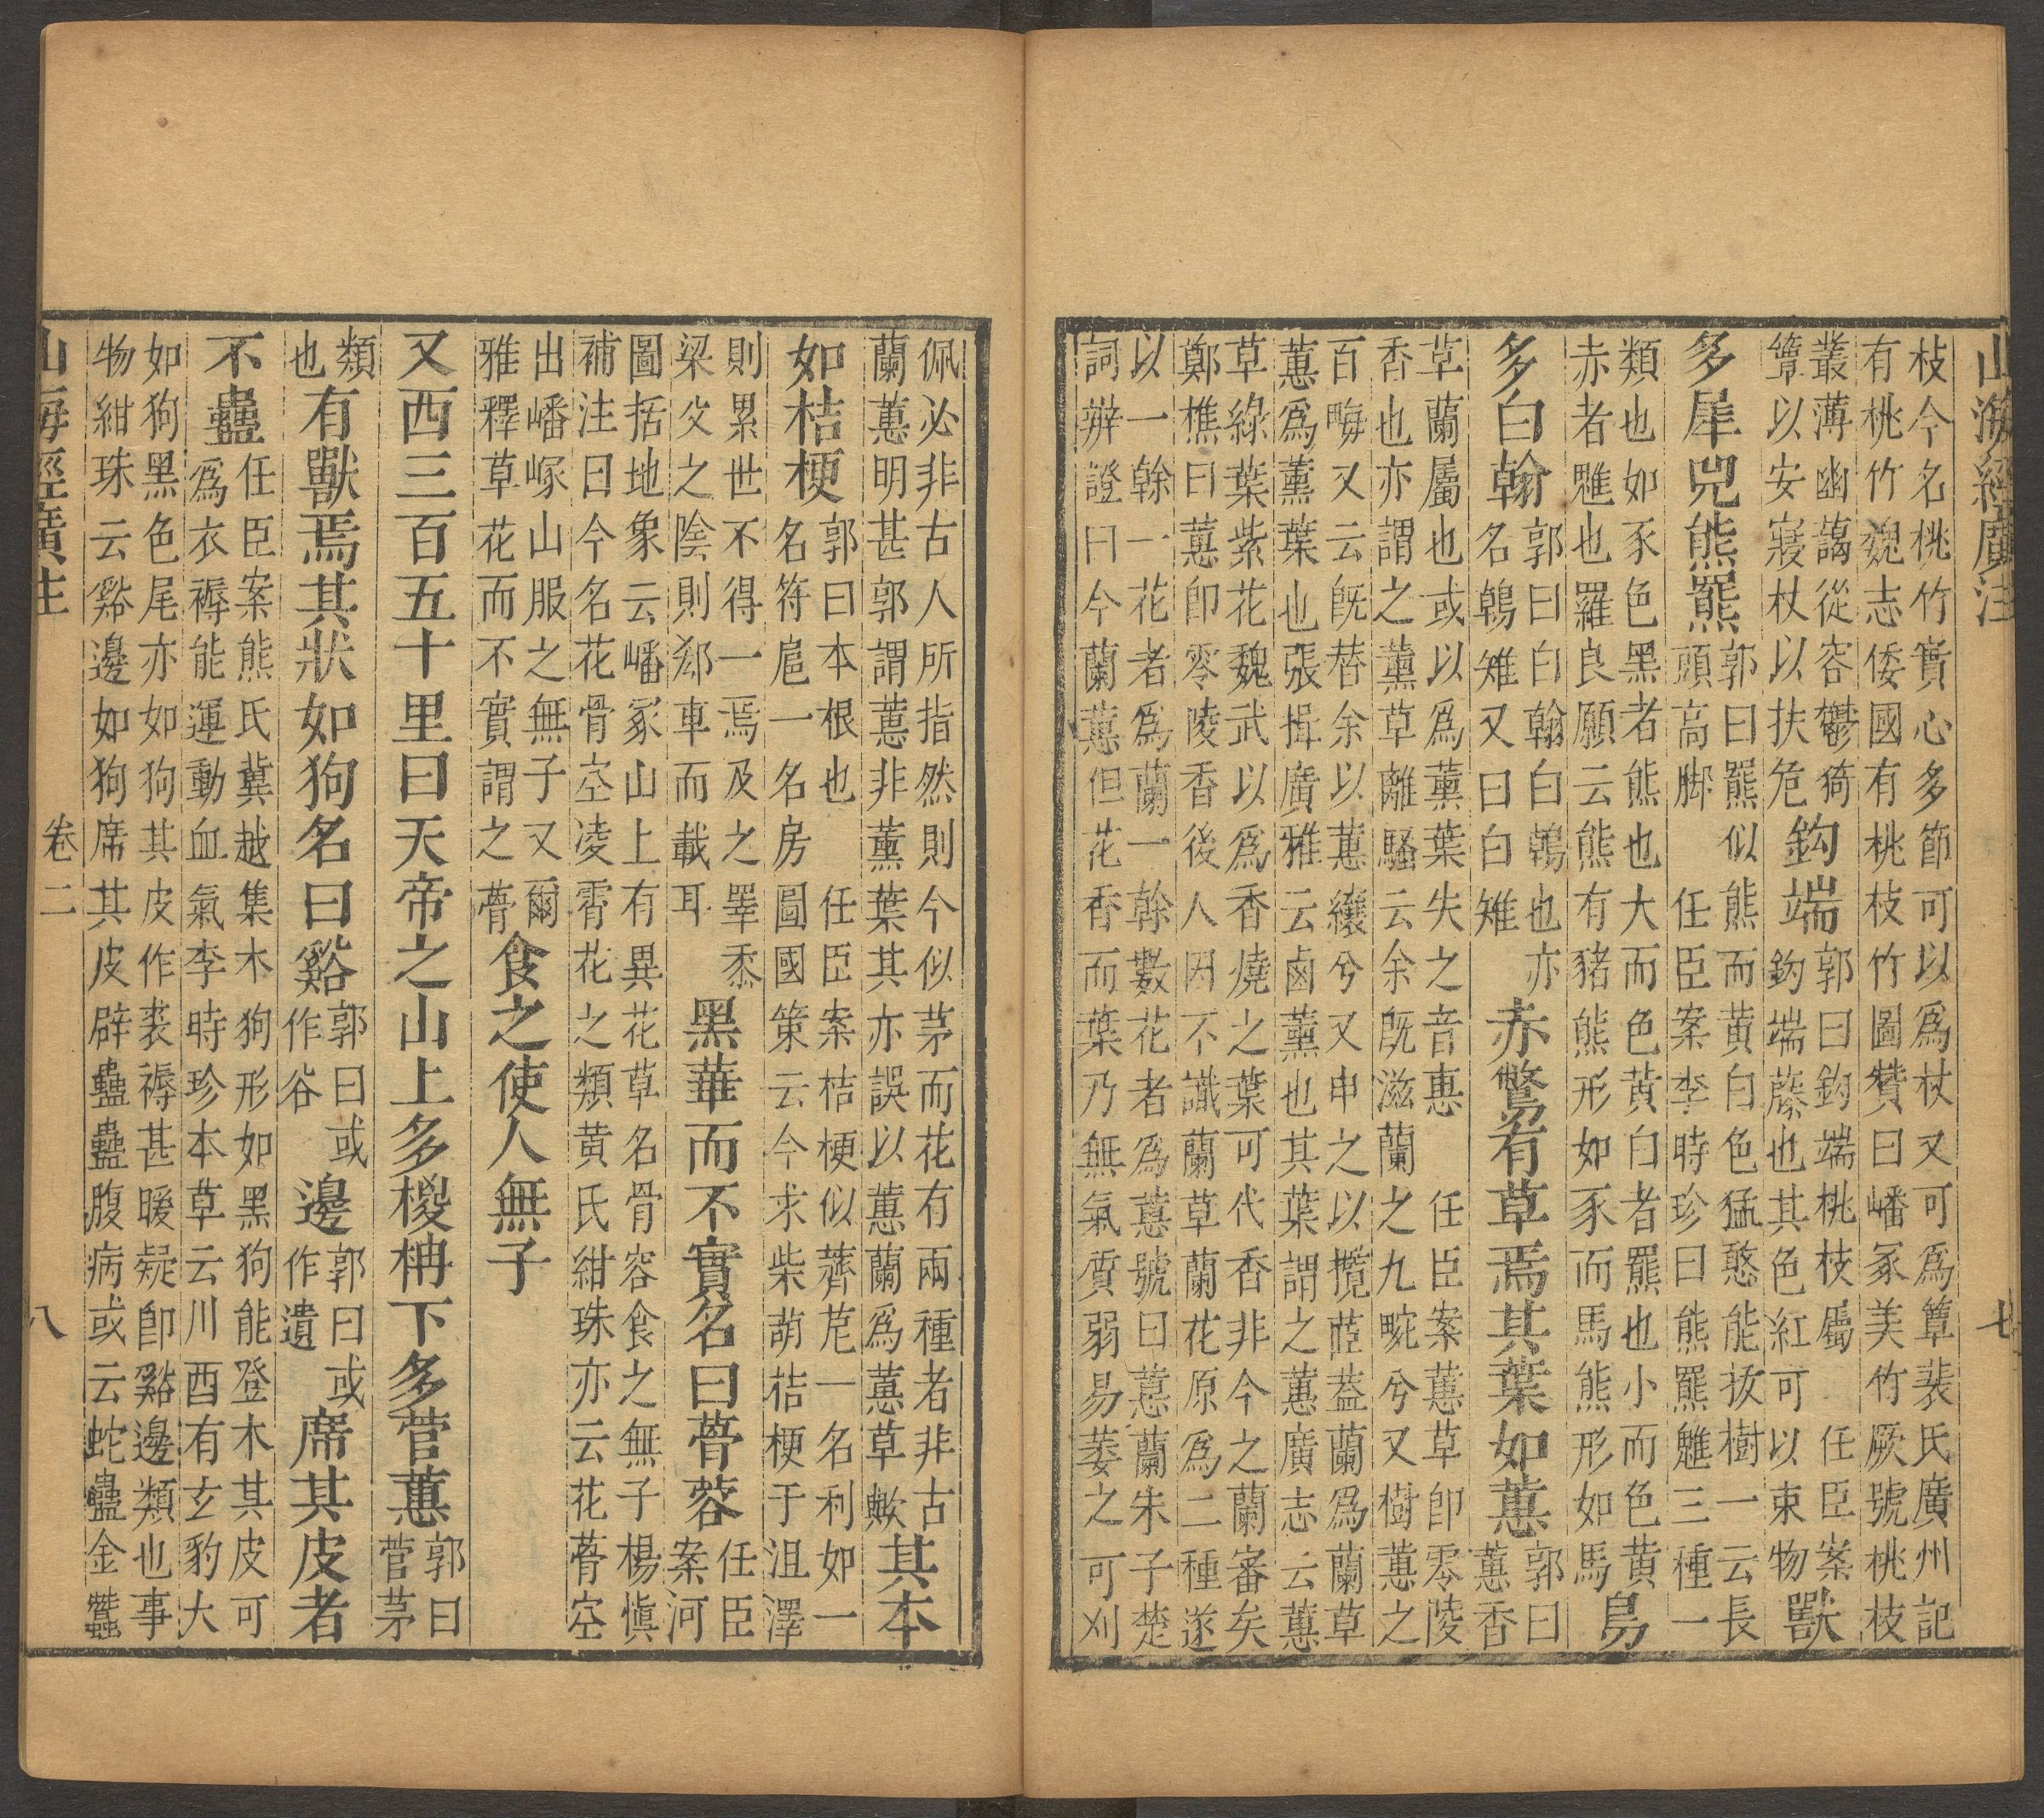 山海經廣注
七
枝今名桃竹實心多節可以爲杖又可爲簟裴氏廣州記
有桃竹魏志倭國有桃枝竹圖贊曰嶓冢美竹厥號桃枝
叢薄幽藹從容鬱猗簟以安寢杖以扶危鈎端郭曰鈎端桃枝屬鈎端藤也其色紅可以束物任臣案獸
多犀兕熊羆郭曰羆似熊而黄白色猛憨能拔樹一云長頭高脚任臣案李時珍曰熊羆魋三種一
類也如豕色黑者熊也大而色黄白者羆也小而色黄
赤者魋也羅良願云熊有猪熊形如豕而馬熊形如馬鳥
多白翰郭曰白翰白鶾也亦名鶾雉又曰白雉赤鷩有草焉其葉如蕙郭曰蕙香
草蘭屬也或以爲薰葉失之音惠任臣案蕙草卽零陵
香也亦謂之薰草離騷云余既滋蘭之九畹兮又樹蕙之
百畮又云旣替余以蕙纕兮又申之以攬茝葢蘭爲蘭草
蕙爲薰葉也張揖廣雅云鹵薰也其葉謂之蕙廣志云蕙
草綠葉紫花魏武以爲香燒之葉可代香非今之蘭審矣
鄭樵曰蕙卽零陵香後人因不識蘭草蘭花原爲二種遂
以一幹一花者爲蘭一幹數花者爲蕙號曰蕙蘭朱子楚
詞辨證曰今蘭蕙但花香而葉乃無氣質弱易萎之可刈
佩必非古人所指然則今似茅而花有兩種者非古
蘭蕙明甚郭謂蕙非薰葉其亦誤以蕙蘭爲蕙草歟其本
如桔梗郭曰本根也任臣案桔梗似薺苨一名利如一名符扈一名房圖國策云今求柴葫桔梗于沮澤
則累世不得一焉及之睪黍梁父之陰則郄車而載耳黑華而不實名曰蓇蓉任臣案河
圖括地象云嶓冢山上有異花草名骨容食之無子楊慎
補注曰今名花骨空凌霄花之類黄氏紺珠亦云花蓇空
出嶓冢山服之無子又爾雅釋草花而不實謂之蓇食之使人無子
又西三百五十里曰天帝之山上多椶枏下多菅蕙郭曰菅茅
類也有獸焉其狀如狗名曰谿郭曰或作谷邊郭曰或作遺席其皮者
不蠱任臣案熊氏冀越集木狗形如黑狗能登木其皮可爲衣褥能運動血氣李時珍本草云川西有玄豹大
如狗黑色尾亦如狗其皮作裘褥甚暖疑卽谿邊類也事
物紺珠云谿邊如狗席其皮辟蠱蠱腹病或云蛇蠱金蠶
山海經廣注
卷二
八